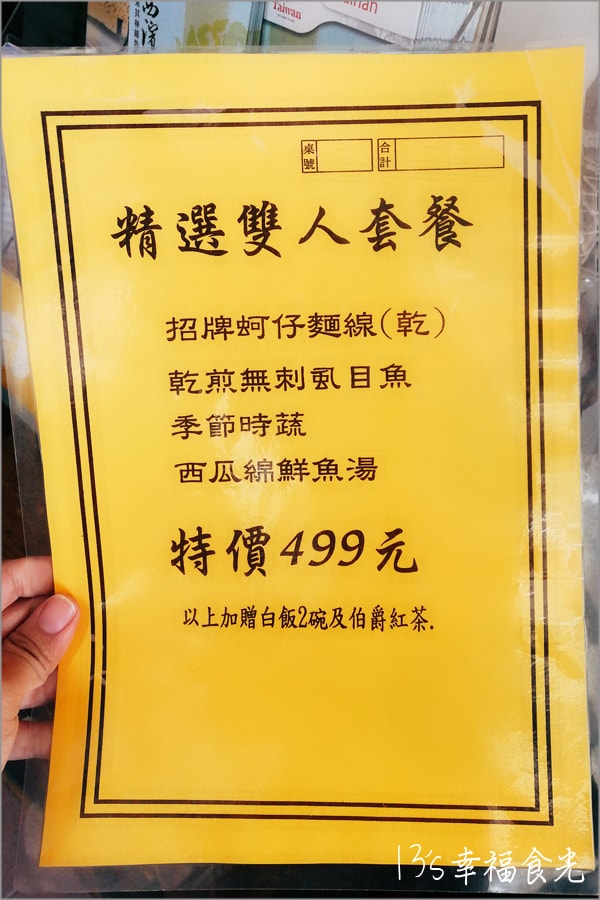 西濱
Taiwan
桌號
合計
精選雙人套餐
招牌蚵仔麵線(乾)
乾煎無刺虱目魚
季節時蔬
西瓜綿鮮魚湯
特價499元
以上加贈白飯2碗及伯爵紅茶.
13's幸福食光